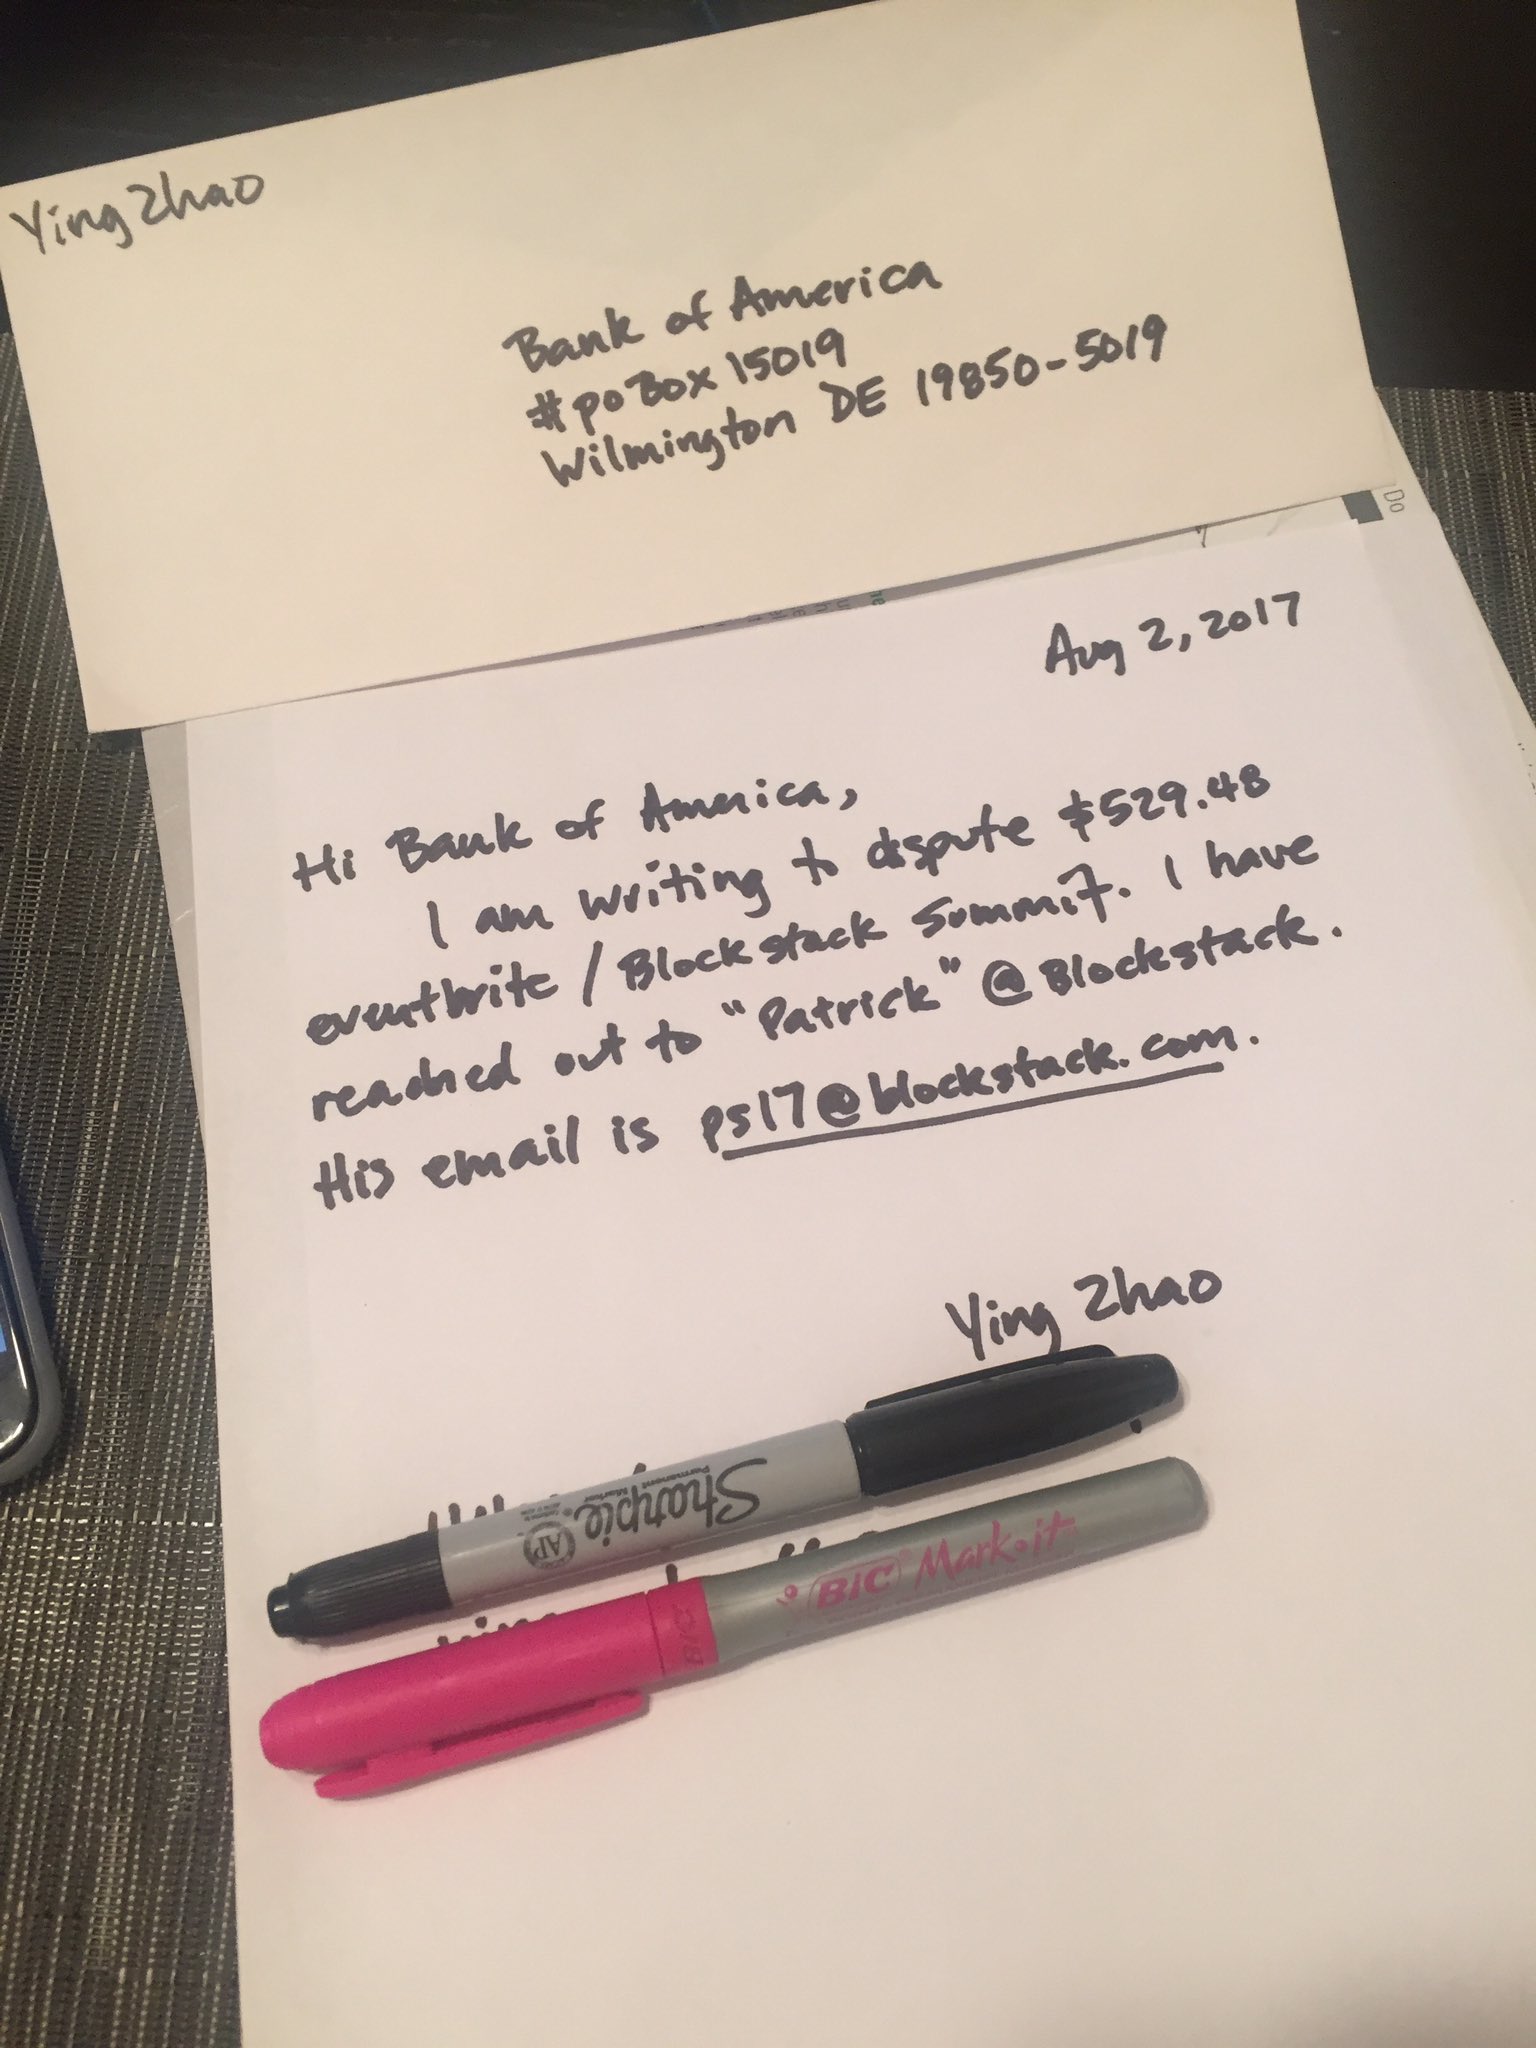 Ying Zhao
Bank of America
#poBox 15019
Wilmington DE 19850-5019
Aug 2, 2017
Hi Bank of America,
I am writing to dispute $529.48
eventbrite / Blockstack Summit. I have
reached out to "Patrick" @ Blockstack.
His email is ps17@blockstack.com.
Ying Zhao
Sharpie
Permanent Marker
AP
BIC Mark·it
BIC